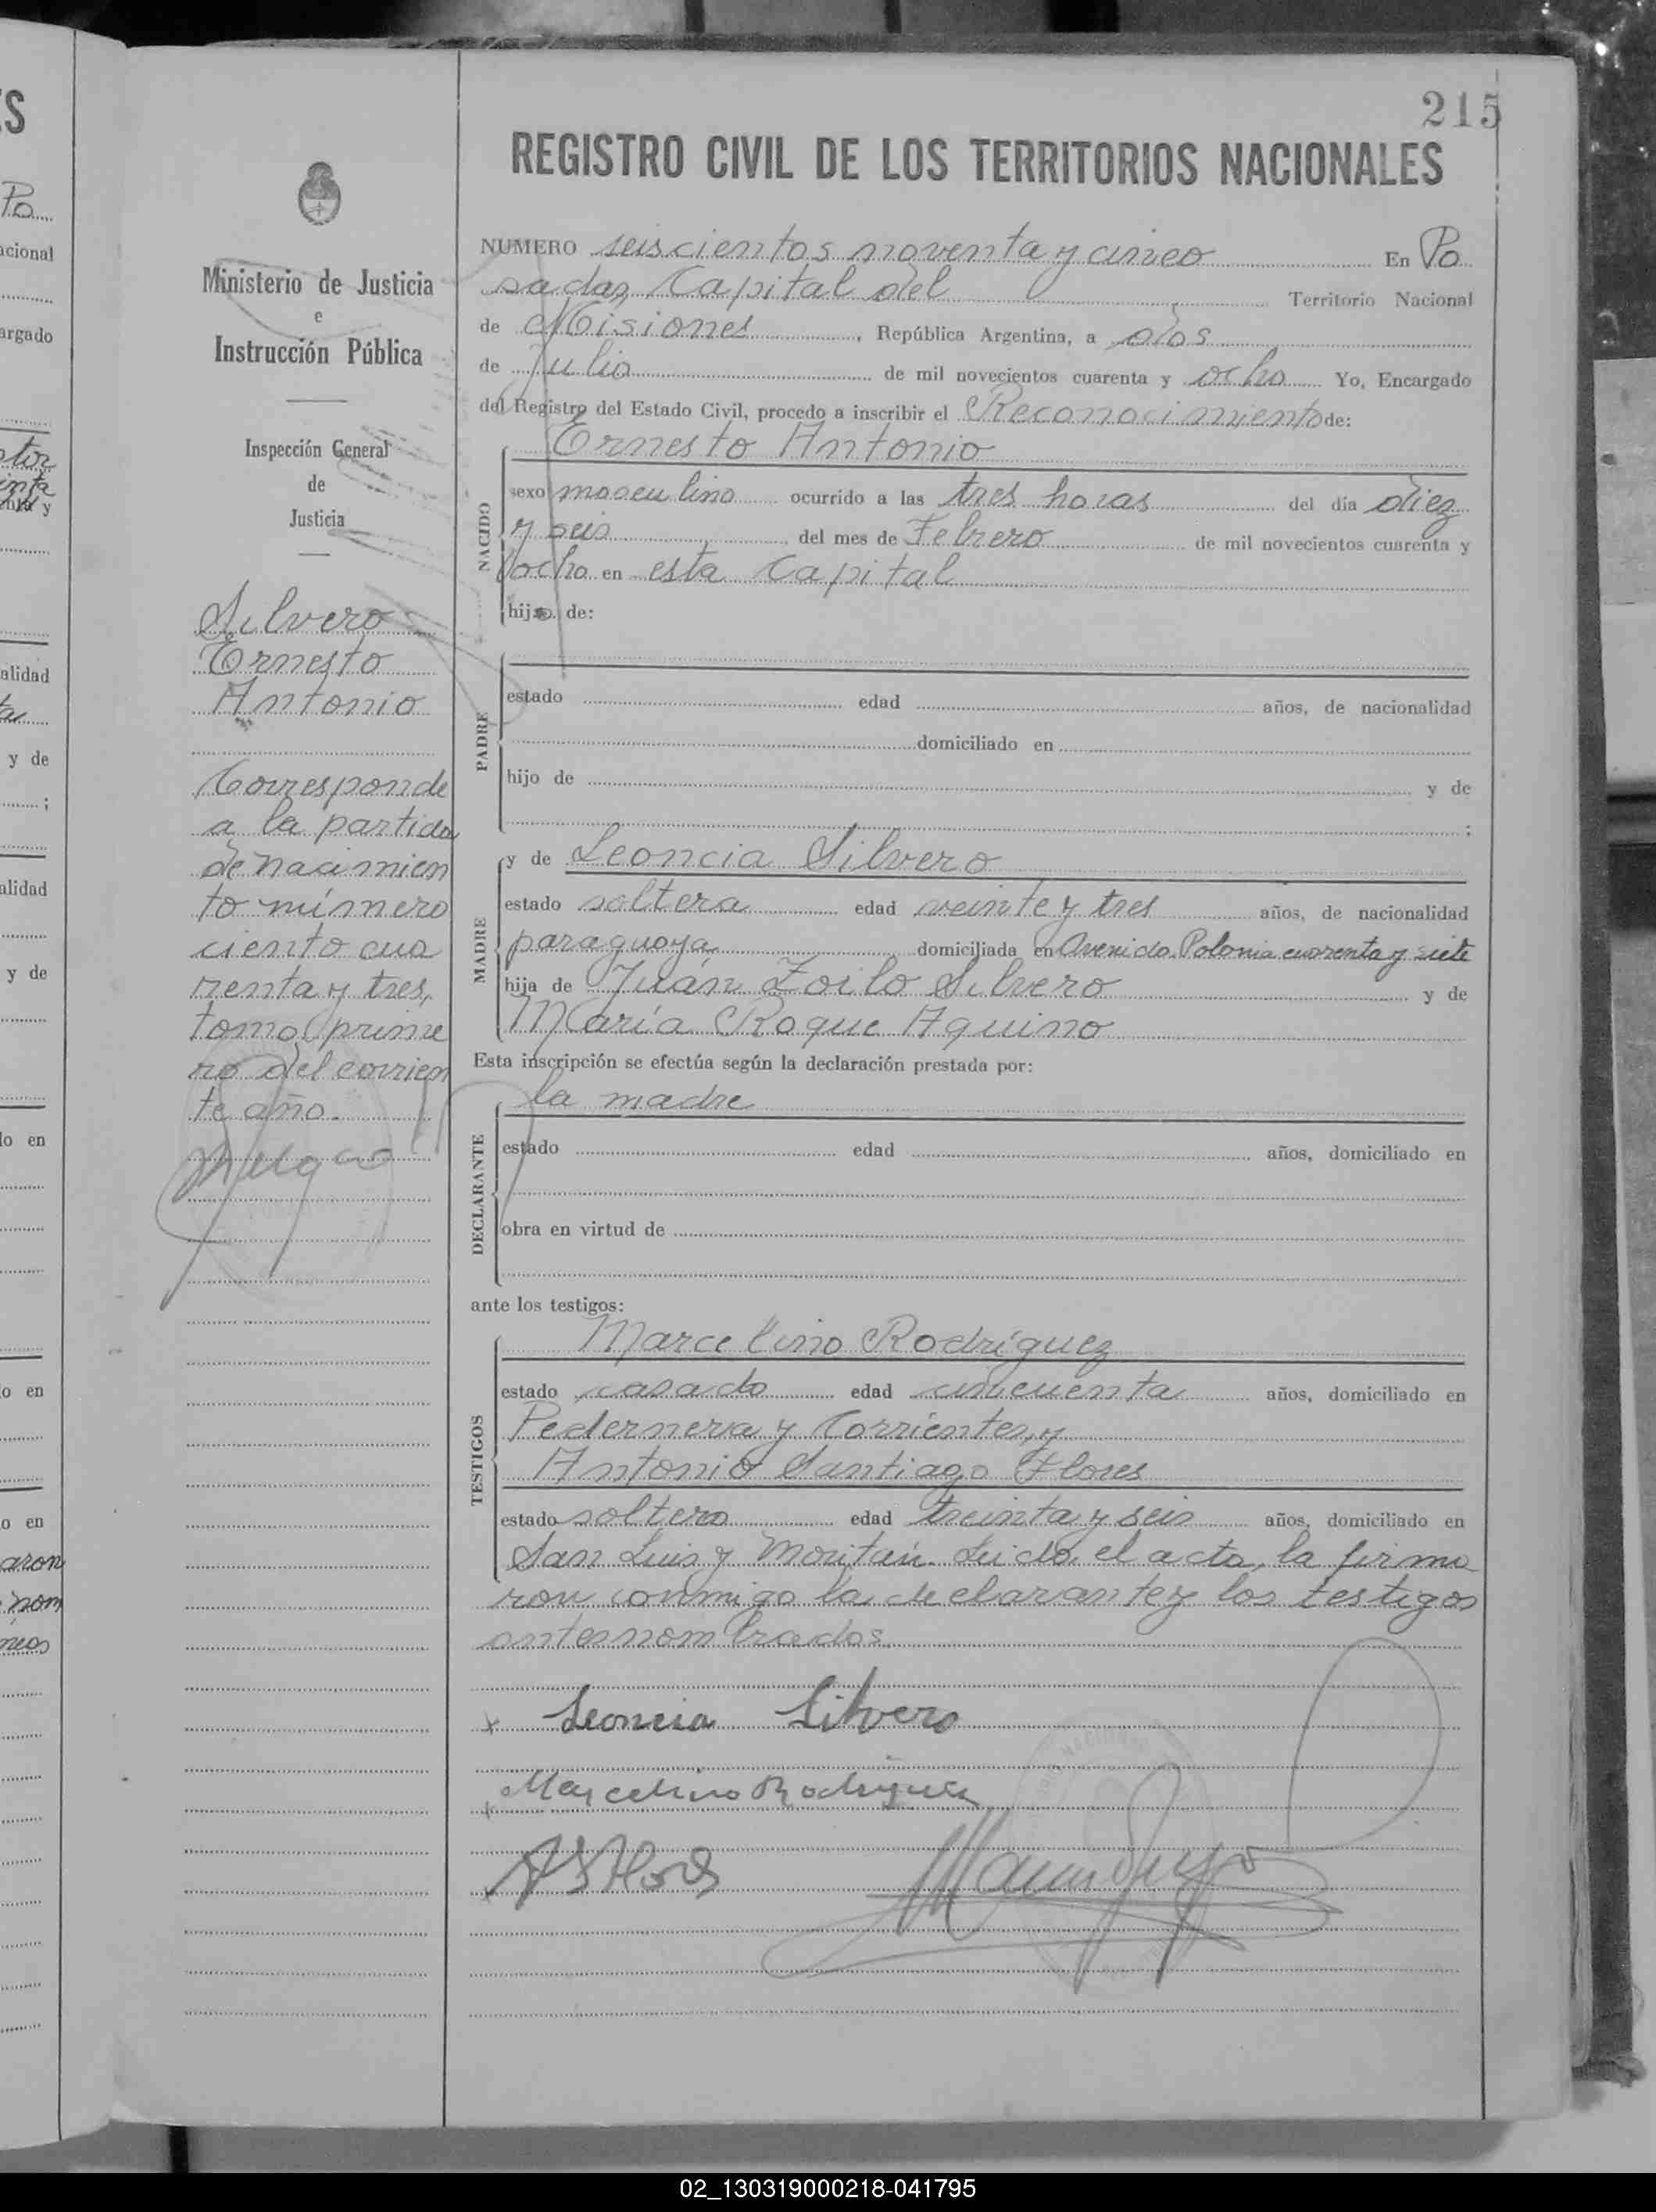 215
REGISTRO CIVIL DE LOS TERRITORIOS NACIONALES
Ministerio de Justicia
e
Instrucción Pública
Inspección General
de
Justicia
Silvero
Ernesto
Antonio
Corresponde
a la partida
de nacimien
to número
ciento cua
renta y tres,
tomo prime
ro del corrien
te año.
NUMERO seiscientos noventa y cinco En Po
sadas, Capital del Territorio Nacional
de Misiones, República Argentina, a dos
de Julio de mil novecientos cuarenta y ocho Yo, Encargado
del Registro del Estado Civil, procedo a inscribir el Reconocimiento de:
Ernesto Antonio
NACIDO
sexo masculino ocurrido a las tres horas del día diez
y seis del mes de Febrero de mil novecientos cuarenta y
ocho en esta Capital
hijo de:
PADRE
estado edad años, de nacionalidad
domiciliado en
hijo de y de
;
MADRE
y de Leoncia Silvero
estado soltera edad veinte y tres años, de nacionalidad
paraguaya domiciliada en Avenida Polonia cuarenta y siete
hija de Juán Zoilo Silvero y de
María Roque Aquino
Esta inscripción se efectúa según la declaración prestada por:
la madre
DECLARANTE
estado edad años, domiciliado en
obra en virtud de
ante los testigos:
TESTIGOS
Marcelino Rodríguez
estado casado edad cincuenta años, domiciliado en
Pedernera y Corrientes, y
Antonio Santiago Flores
estado soltero edad treinta y seis años, domiciliado en
San Luis y Moritán. Leida el acta, la firma
ron conmigo la declarante y los testigos
antesnombrados.
x Leoncia Silvero
x Marcelino Rodriguez
x A S Flores
S
Po
acional
argado
alidad
y de
;
alidad
y de
lo en
o en
o en
aron
nom
02_130319000218-041795